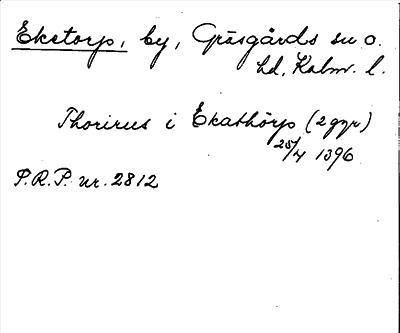 Ekstorp, by, Gräsgårds sn o.
hd, Kalm. l.
Thorirus i Ekathorp (2 ggr)
25/4 1396
P.R.P. nr. 2812